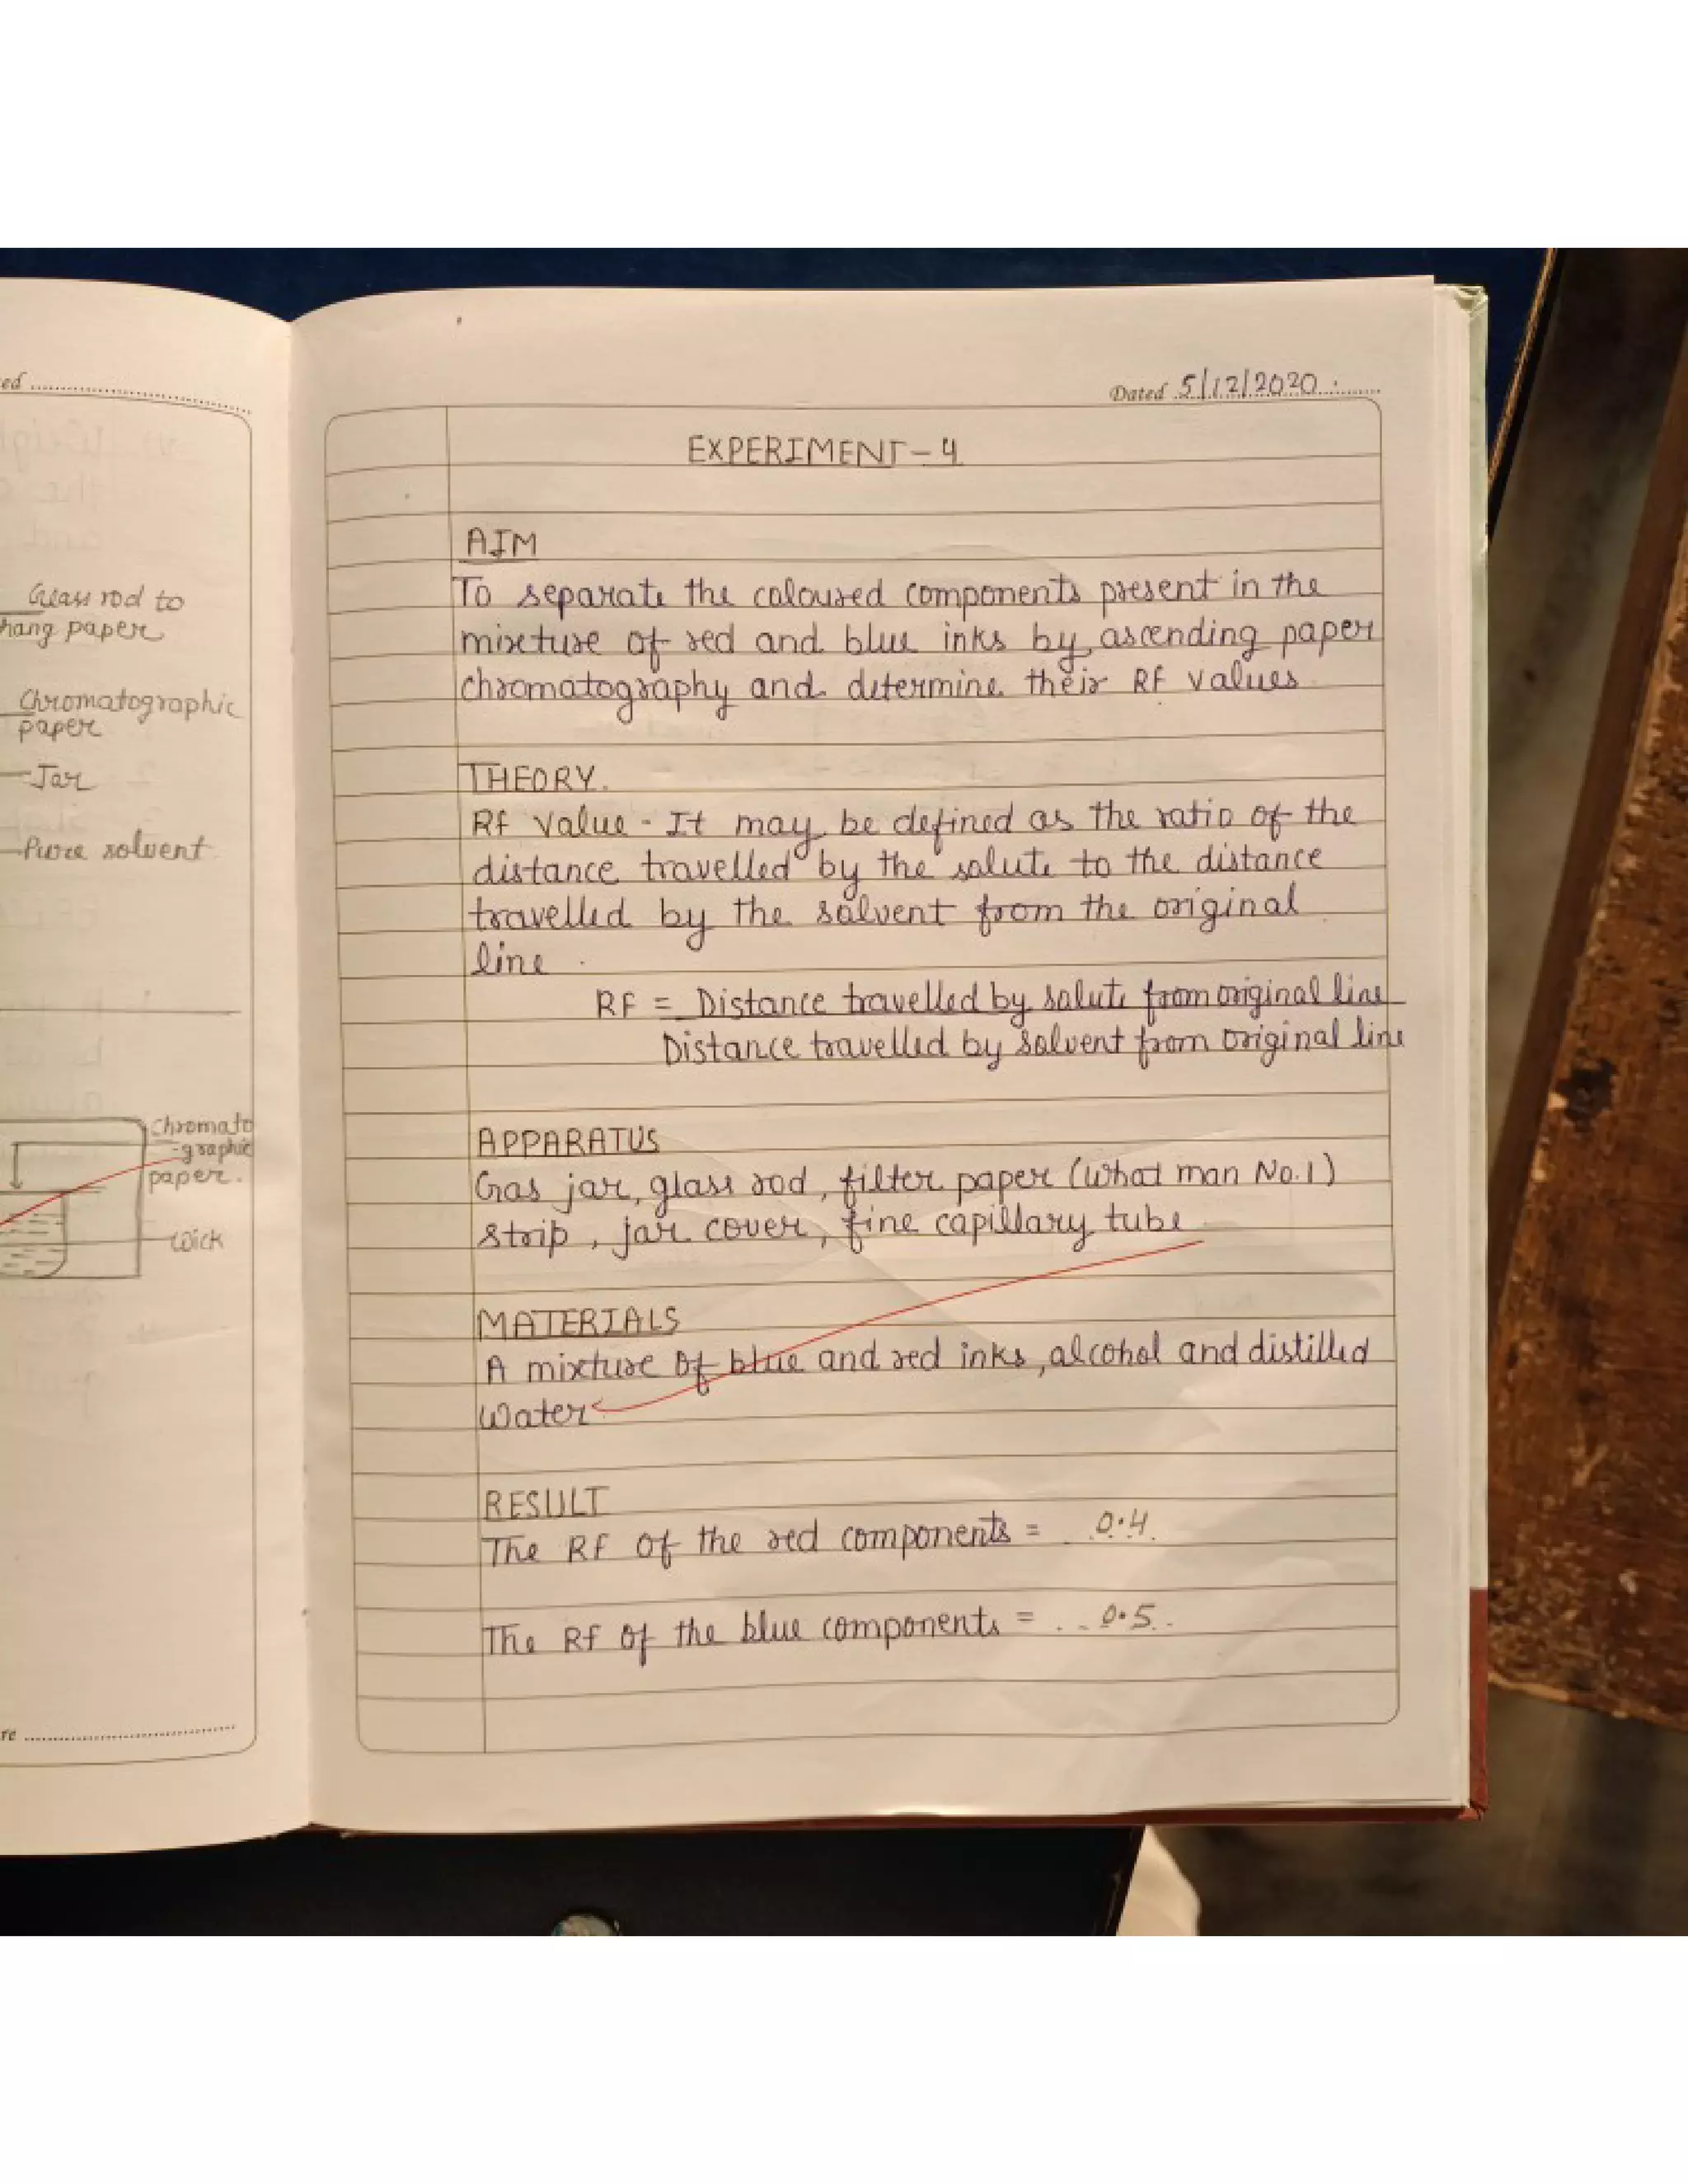 ed ........
Glass rod to
hang paper
Chromatographic
paper
Jar
Pure solvent
Chromato
-graphic
paper.
Wick
re ........
Dated 5/12/2020
EXPERIMENT-4
AIM
To separate the coloured components present in the
mixture of red and blue inks by ascending paper
chromatography and determine their RF values
THEORY.
Rf value - It may be defined as the ratio of the
distance travelled by the solute to the distance
travelled by the solvent from the original
line.
RF = Distance travelled by solute from original line
Distance travelled by solvent from original line
APPARATUS
Gas jar, glass rod, filter paper (What man No.1)
strip, jar cover, fine capillary tube
MATERIALS
A mixture of blue and red inks, alcohol and distilled
water
RESULT
The Rf of the red components = 0.4
The Rf of the blue components = 0.5